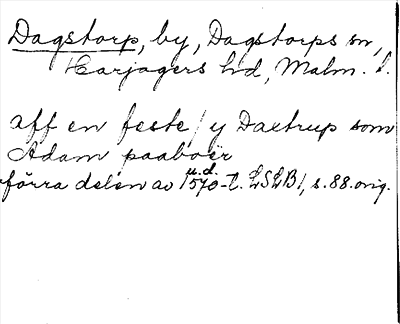 Dagstorp, by, Dagstorps sn,
Harjagers hd, Malm. l.
aff en feste / y Daxtrup som
Adam paaboër
u.d.
förra delen av 1570-t. LSLB/, s. 88. orig.